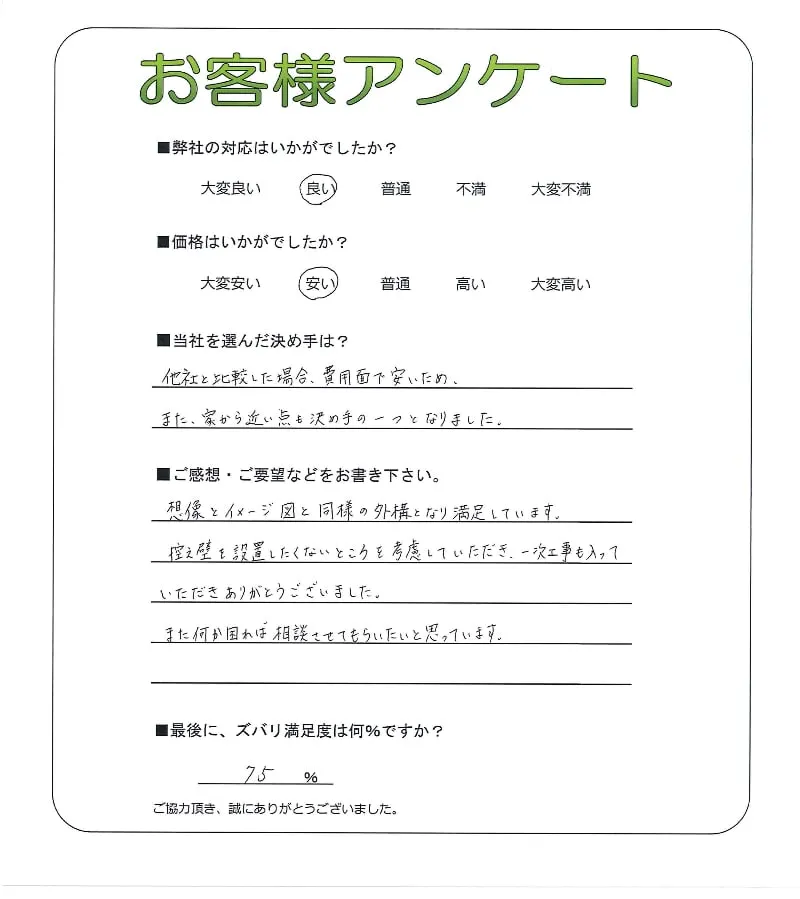 お客様アンケート
■弊社の対応はいかがでしたか？
大変良い 良い 普通 不満 大変不満
■価格はいかがでしたか？
大変安い 安い 普通 高い 大変高い
■当社を選んだ決め手は？
他社と比較した場合、費用面で安いため、
また、家から近い点も決め手の一つとなりました。
■ご感想・ご要望などをお書き下さい。
想像とイメージ図と同様の外構となり満足しています。
控え壁を設置したくないところを考慮していただき、一次工事も入って
いただきありがとうございました。
また何か困れば相談させてもらいたいと思っています。
■最後に、ズバリ満足度は何%ですか？
75 %
ご協力頂き、誠にありがとうございました。